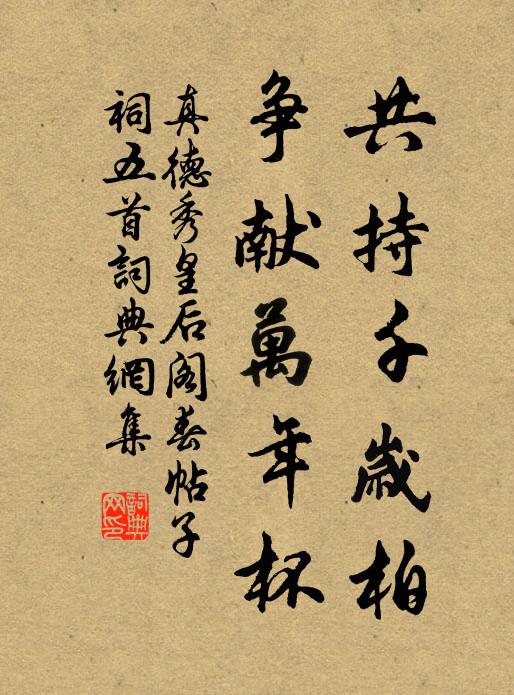 共持千歲柏
争献萬年杯
真德秀皇后阁春帖子
祠五首詞典網集
詞典網印